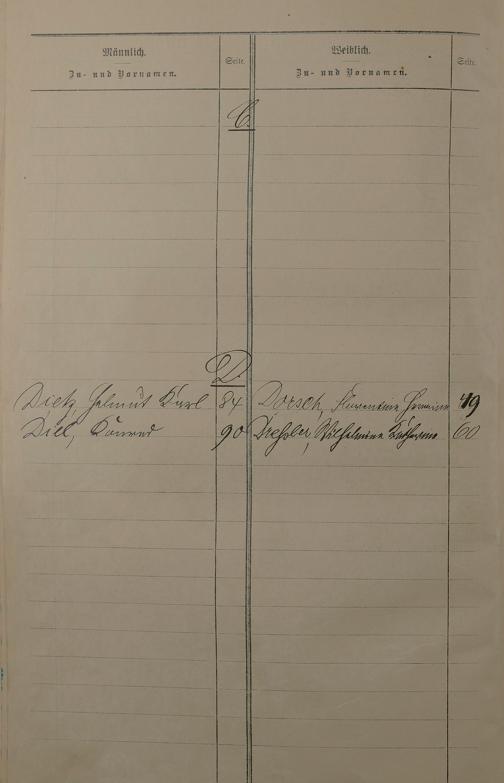 Männlich.
Zu- und Vornamen.
Seite.
Weiblich.
Zu- und Vornamen.
Seite.
C.
D.
Dietz, Helmut Karl 84 Dorsch, Florentine Hermine 49
Diel, Konrad 90 Wilhelmine Katharina 60